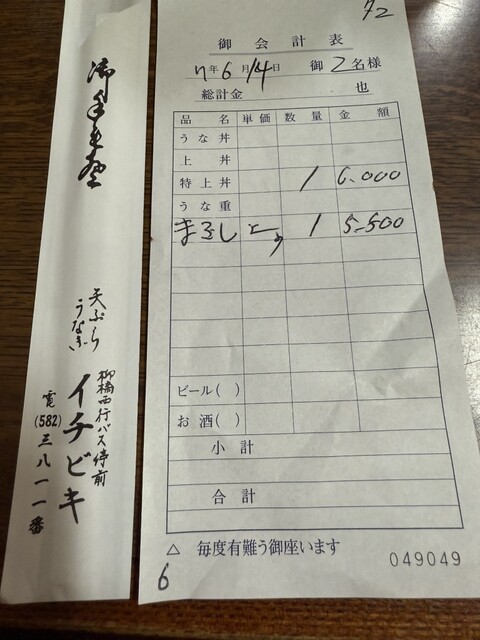 御手もと
天ぷら
うなぎ
柳橋西行バス停前
イチビキ
電(582)三八一一番
72
御会計表
7年6月14日 御2名様
総計金 也
品名 単価 数量 金額
うな丼
上丼
特上丼 1 6.000
うな重
まぶし 1 5.500
ビール( )
お酒( )
小計
合計
△ 毎度有難う御座います
049049
6